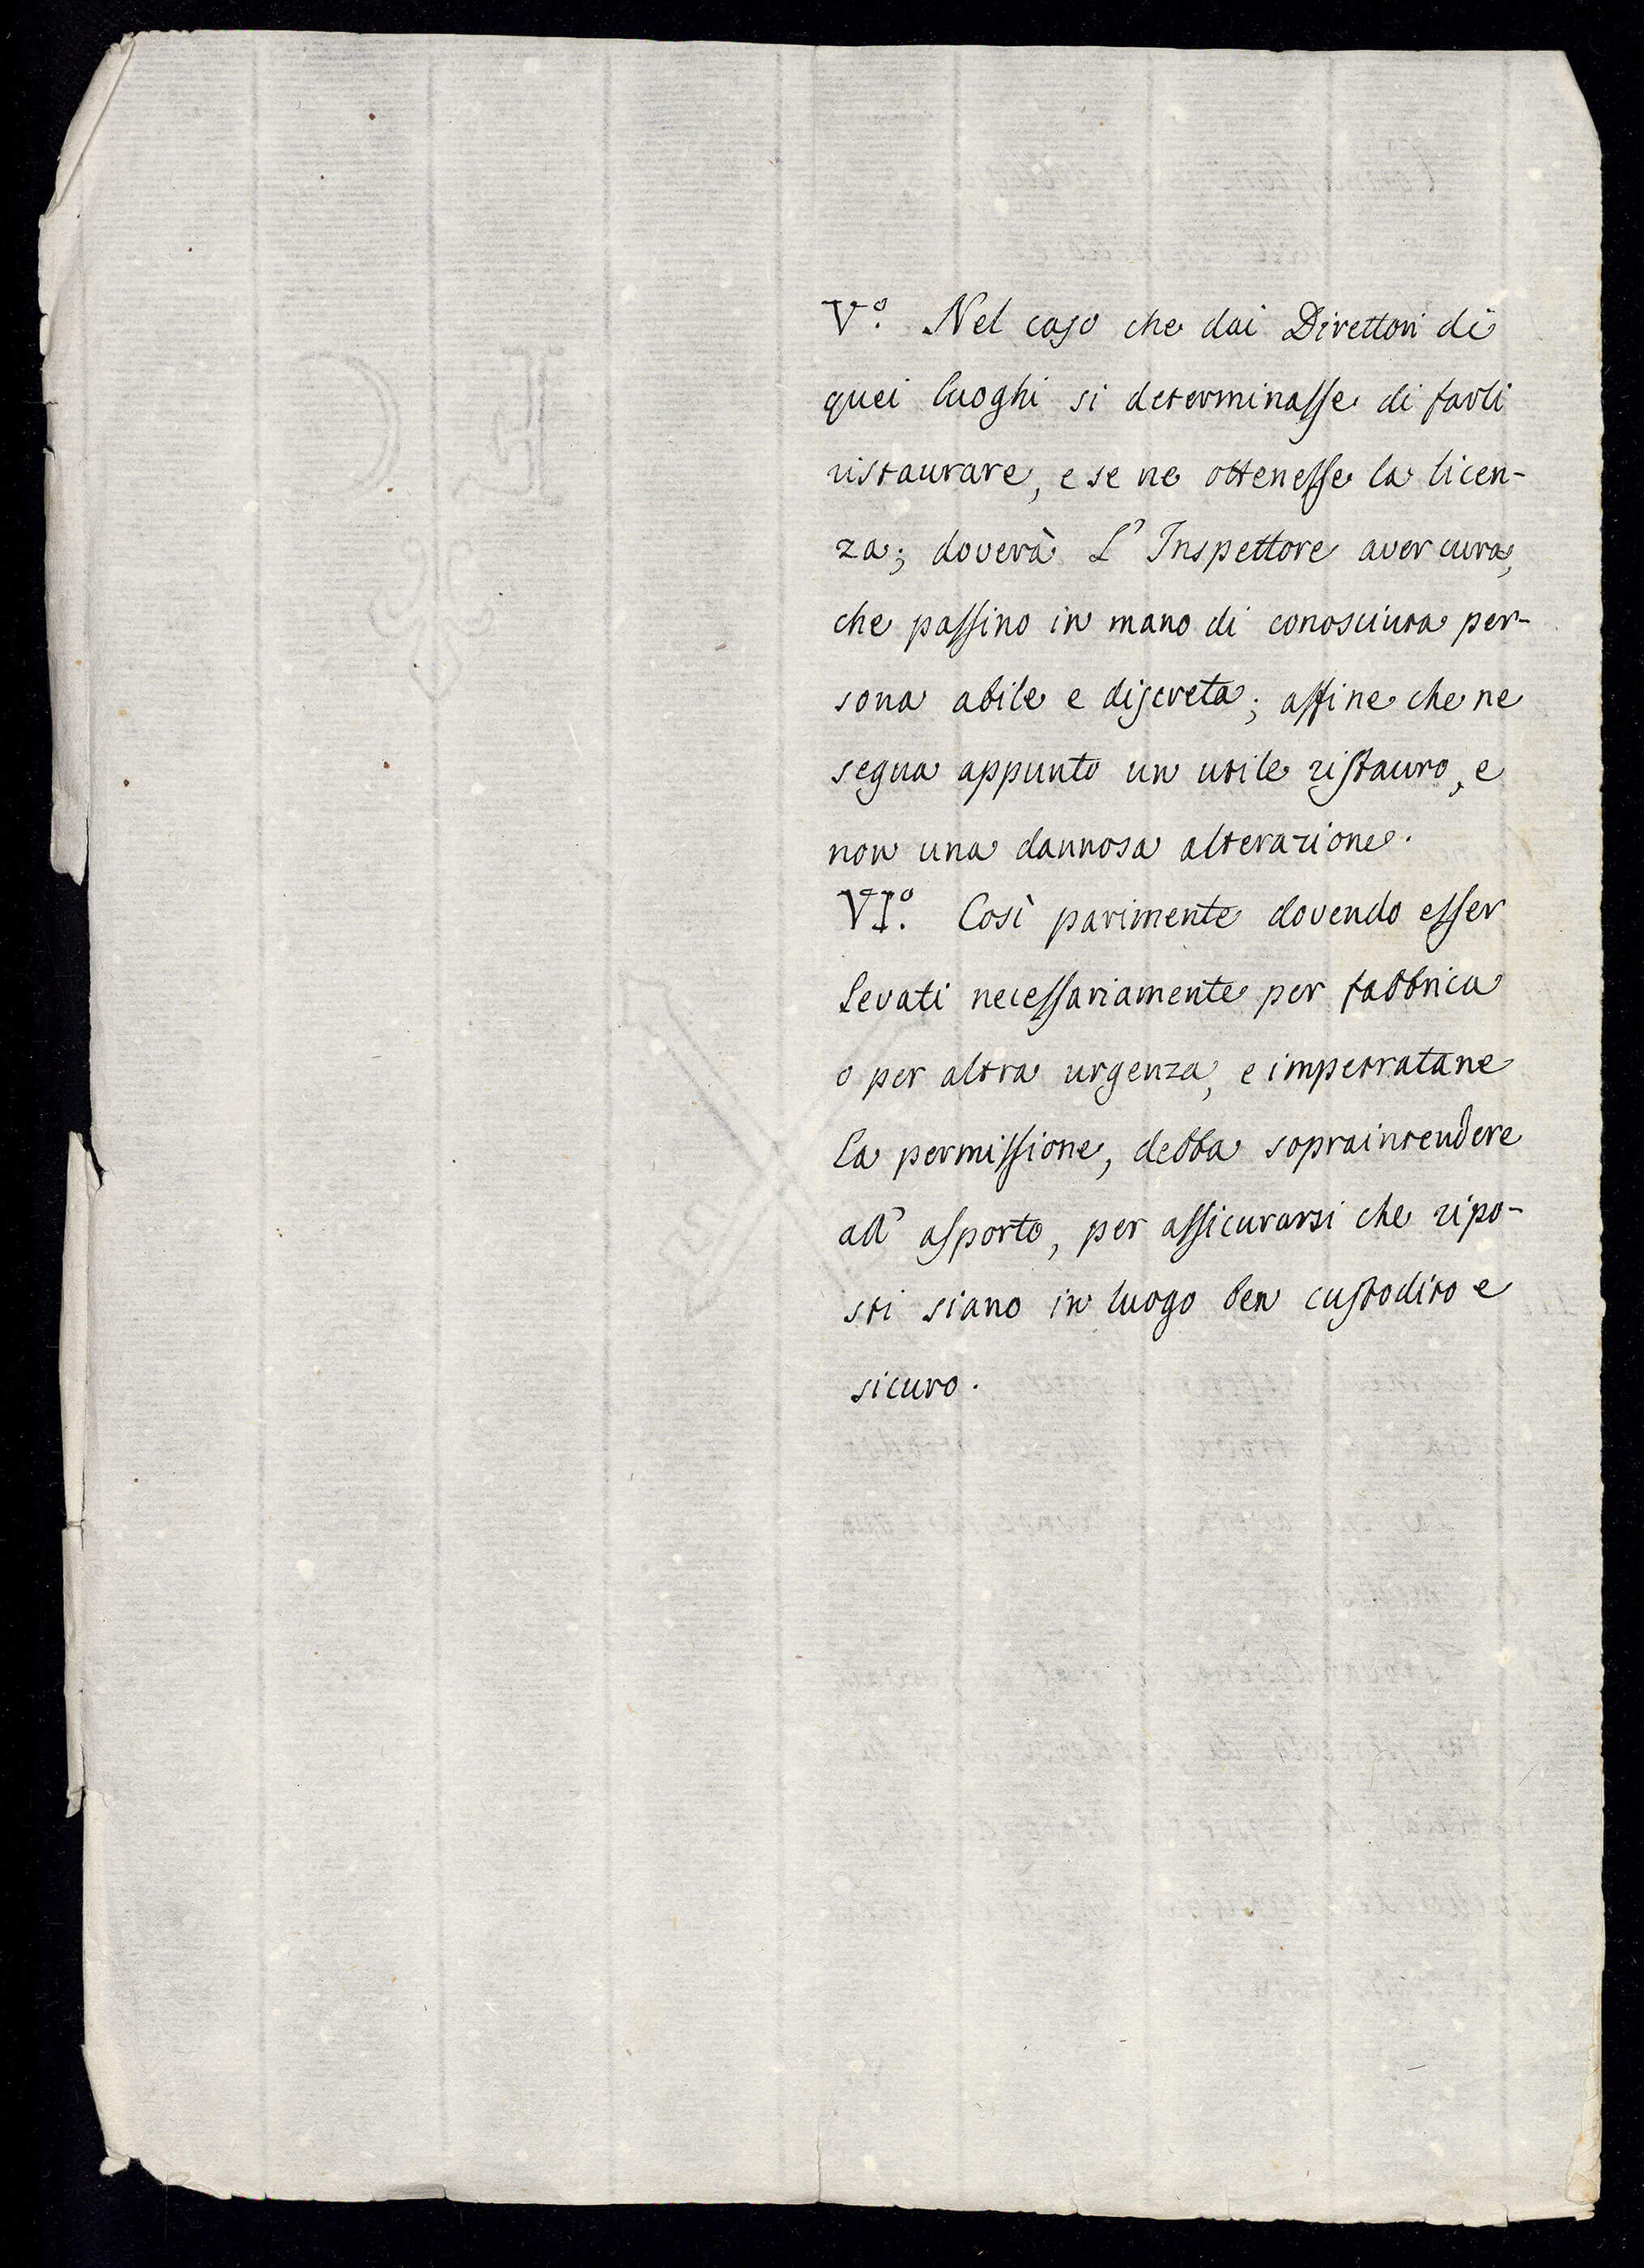 V.º Nel caso che dai Direttori di
quei luoghi si determinasse di farli
ristaurare, e se ne ottenesse la licen-
za; doverà L' Inspettore aver cura,
che passino in mano di conosciuta per-
sona abile e discreta; affine che ne
segua appunto un utile ristauro, e
non una dannosa alterazione.
VI.º Così parimente dovendo esser
levati necessariamente per fabbrica
o per altra urgenza, e impetratane
la permissione, debba sopraintendere
all' asporto, per assicurarsi che ripo-
sti siano in luogo ben custodito e
sicuro.